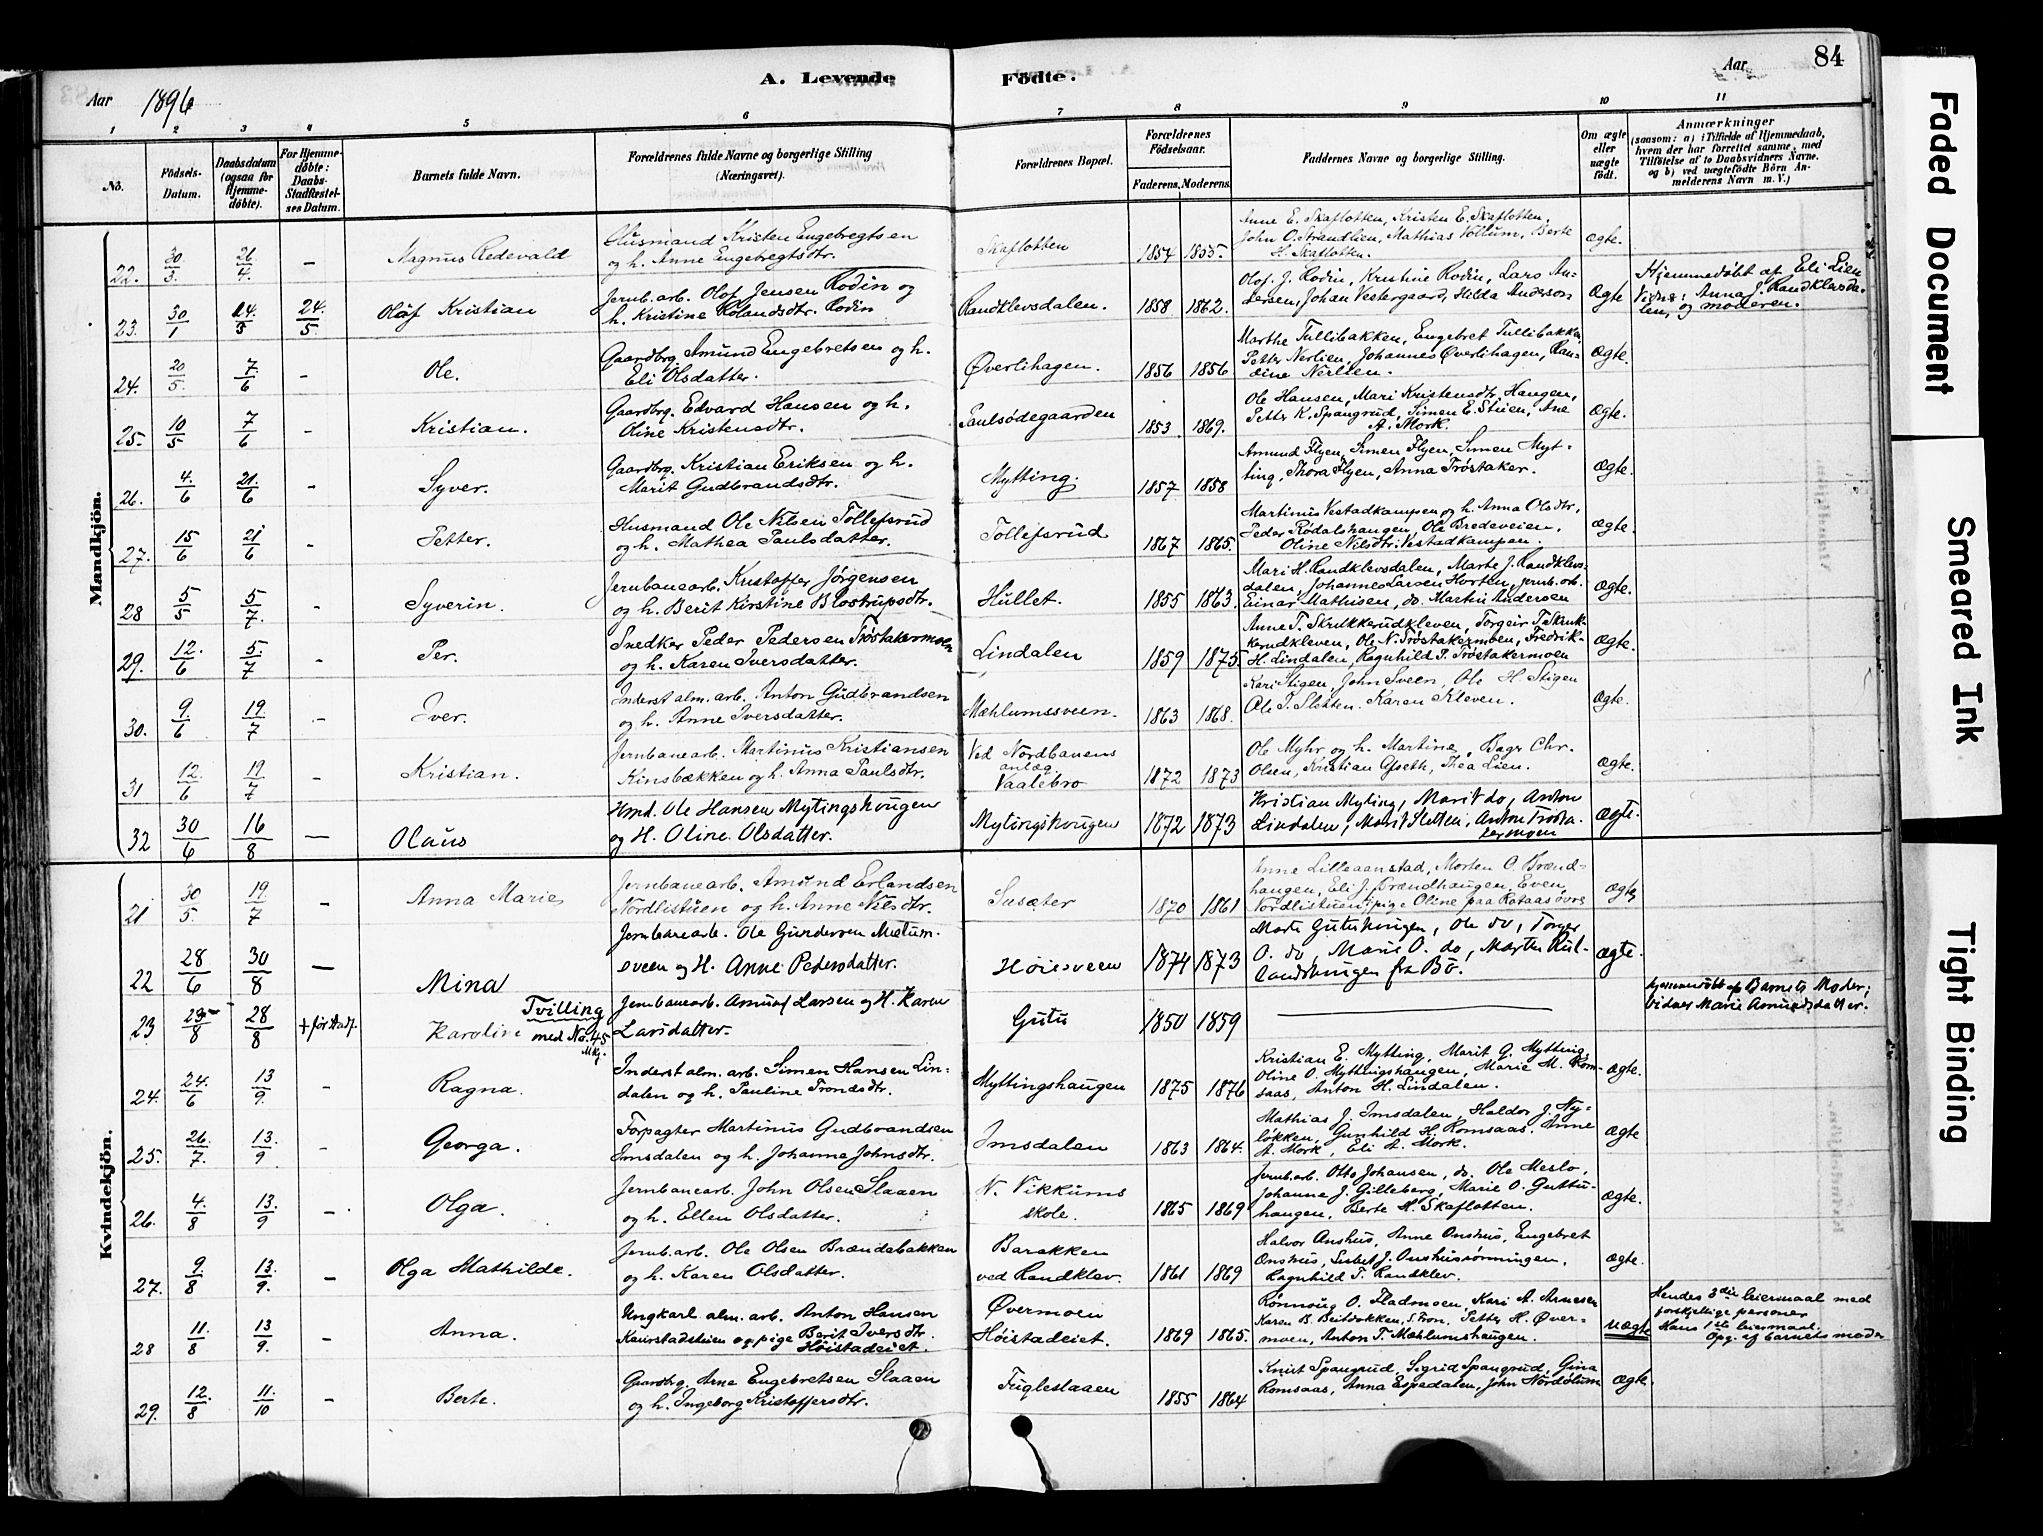 84
A. Levende Födte.
Aar 1896
Aar
1 2 3 4 5 6 7 8 9 10 11
No.
Födsels-Datum.
Daabsdatum (ogsaa for Hjemmedöbte).
For Hjemmedöbte: Daabs-Stadfæstelses Datum.
Barnets fulde Navn.
Forældrenes fulde Navne og borgerlige Stilling (Næringsvei).
Forældrenes Bopæl.
Forældrenes Födselsaar.
Faderens. Moderens.
Faddernes Navne og borgerlige Stilling.
Om ægte eller uægte födt.
Anmærkninger
(saasom: a) i Tilfælde af Hjemmedaab, hvem der har forrettet samme, med Tilföielse af to Daabsvidners Navne, og b) ved uægtefödte Börn Anmelderens Navn m. V.)
Mandkjön.
22. 30/3. 26/4. - Magnus Redevald
Husmand Kristen Engebregtsen
og h. Anne Engebregtsdtr.
Skaflotten 1854 1855.
Anne E. Skaflotten, Kristen E. Skaflotten,
John O. Strandlien, Mathias Vollum, Berte
H. Skaflotten.
Ægte.
23. 30/1 24/5 24./5. Olaf Kristian
Jernb.arb. Olof Jensen Rodin og
h. Kristine Rolandsdtr. Rodin
Randklevsdalen. 1858 1862.
Olof J. Rodin, Kristine Rodin, Lars An-
dersen, Johan Vestergaard, Hilda Anderson
Ægte
Hjemmedöbt af Eli Lien
Vidne: Anna J. Randklevsda-
len, og moderen.
24. 20/5. 7/6 - Ole.
Gaardbrg. Amund Engebretsen og h.
Eli Olsdatter.
Øverlihagen. 1856 1856
Marthe Tullibakken, Engebret Tullibakken
Petter Nerlien, Johannes Øverlihagen, Ran-
dine Nerlien.
Ægte.
25. 10/5 7/6 - Kristian.
Gaardbrg. Edvard Hansen og h.
Oline Kristensdtr.
Paulsødegaarden 1853. 1869.
Ole Hansen, Mari Kristensdtr. Haugen,
Petter K. Spangrud, Simen E. Stuen, Ane
A. Mork.
Ægte.
26. 4./6 21./6 - Syver.
Gaardbrg. Kristian Eriksen og h.
Marit Gudbrandsdtr.
Mytting. 1857 1858
Amund Flyen, Simen Flyen, Simen Myt-
ting, Thora Flyen, Anna Trøstaker.
Ægte.
27. 15/6 21/6 - Petter.
Husmand Ole Nilsen Tollefsrud
og h. Mathea Paulsdatter.
Tollefsrud 1867 1865.
Martinus Vestadkampen og h. Anna Olsdtr,
Peder Rødalshaugen, Ole Bredeveien,
Oline Nilsdtr. Vestadkampen.
Ægte.
28 5/5 5/7. - Syverin.
Jernbanearb. Kristoffer Jørgensen
og h. Berit Kirstine Blostrupsdtr.
Hullet. 1855 1863.
Mari H. Randklevsdalen, Marte J. Randklevs-
dalen, Johannes Larsen Horten, jernb. arb.
Einar Mathisen, do. Martin Andersen
Ægte.
29. 12./6 5./7 - Per.
Snedker Peder Pedersen Trøstakermoen
og h. Karen Iversdatter.
Lindalen 1859 1875.
Anne T. Skrukkerudkleven, Torgeir T. Skruk-
kerudkleven, Ole N. Trøstakermoen, Fredrik-
H. Lindalen, Ragnhild P. Trøstakermoen
Ægte.
30. 9./6 19/7 - Iver.
Inderst alm. arb. Anton Gudbrandsen
og h. Anne Iversdatter.
Mæhlumssveen. 1863 1868.
Kari Stigen, John Sveen, Ole H Stigen
Ole T. Sletten. Karen Kleven.
Ægte.
31 12./6 19/7 - Kristian.
Jernbanearb. Martinus Kristiansen
Kinsbækken og h. Anna Paulsdtr.
Ved Nordbanens
anlæg
Vaalebro 1872 1873
Ole Myhr og h. Martine, Bager Chr.
Olsen, Kristian Afseth, Thea Lien.
Ægte.
32 30/6 16/8 - Olaus
Hmd. Ole Hansen Mytingshougen
og H. Oline Olsdatter.
Mytingshougen 1872 1873
Kristian Myting, Marit do, Anton
Lindalen, Marit Sletten, Anton Trøsta-
kermoen
Ægte.
Kvindekjön.
21 30/5 19/7 - Anna Marie
Jernbanearb. Amund Erlandsen
Nordlistuen og h. Anne Nilsdtr.
Susæter 1870 1861
Anne Lilleaanstad, Morten O. Brænd-
haugen, Eli J. Brændhaugen, Even
Nordlistuen, pige Oline paa Rataasøvre
Ægte
22 28/6 30/8 - Mina
Jernbanearb. Ole Gundersen Mælum-
sveen og H. Anne Pedersdatter.
Høiesveen 1874 1873
Marte Gutuhougen, Ole do, Torger
O. do, Marie O. do, Marthe Rul-
landshougen fra Bø.
Ægte.
23 23/8 28/8 + før stadf. Karoline
Tvilling
med No. 45
Mkj.
Jernbanearb. Amund Larsen og H. Karen
Larsdatter.
Gutu 1850 1859
Hjemmedöbt af Barnets Moder;
Vidner Marie Amundsdatter.
24. 24./6 13/9. - Ragna.
Inderst alm. arb. Simen Hansen Lin-
dalen og h. Pauline Trondsdtr.
Myttingshaugen 1875 1876
Kristian E. Mytting, Marit G. Mytting,
Oline O. Myttingshaugen, Marie M. Rom-
saas, Anton H. Lindalen.
Ægte.
25. 26./7. 13./9 - Georga.
Forpagter Martinus Gudbrandsen
Imsdalen og h. Johanne Johnsdtr.
Imsdalen 1863 1864.
Mathias J. Imsdalen, Haldor J. Ny-
løkken, Gunhild H. Romsaas. Anne
A. Mork, Eli A. Mork.
Ægte
26. 4./8 13./9 - Olga.
Jernbanearb. John Olsen Slaaen
og h. Ellen Olsdatter.
N. Vikkums
skole. 1865 1869
Jernb.arb. Otto Johansen, do. Ole Meslo,
Johanne J. Gilleberg, Marie O. Guttu-
haugen, Berte H. Skaflotten.
Ægte.
27. 9./8 13./9. - Olga Mathilde.
Jernb.arb. Ole Olsen Brændebakken
og h. Karen Olsdatter.
Barakken
ved Randklev. 1861 1869
Halvor Onshus, Anne Onshus, Engebret
Onshus, Lisbet J. Onshusrønningen,
Ragnhild T. Randklev.
Ægte.
28 11./8 13/9. - Anna.
Ungkarl alm. arb. Anton Hansen
Kaurstadstuen og pige Berit Iversdtr.
Høistadeiet.
Øvermoen
Høistadeiet 1869 1865.
Rønnoug O. Fladmoen, Kari A. Arnesen
Karen B. Beitdokken, S. Fron, Petter H. Øver-
moen, Anton T. Mæhlumshaugen.
Uægte
Hendes 3die leiermaal med
forskjellige personer
Hans 1ste leiermaal.
Opg. af barnets moder
29. 12./8 11./10 - Berte.
Gaardbrg. Arne Engebretsen Slaaen
og h. Ingeborg Kristoffersdtr.
Fugleslaaen 1855 1864
Knut Spangrud, Sigrid Spangrud, Gina
Romsaas, Anna Espedalen, John Nordølum
Ægte.
Faded Document
Smeared Ink
Tight Binding